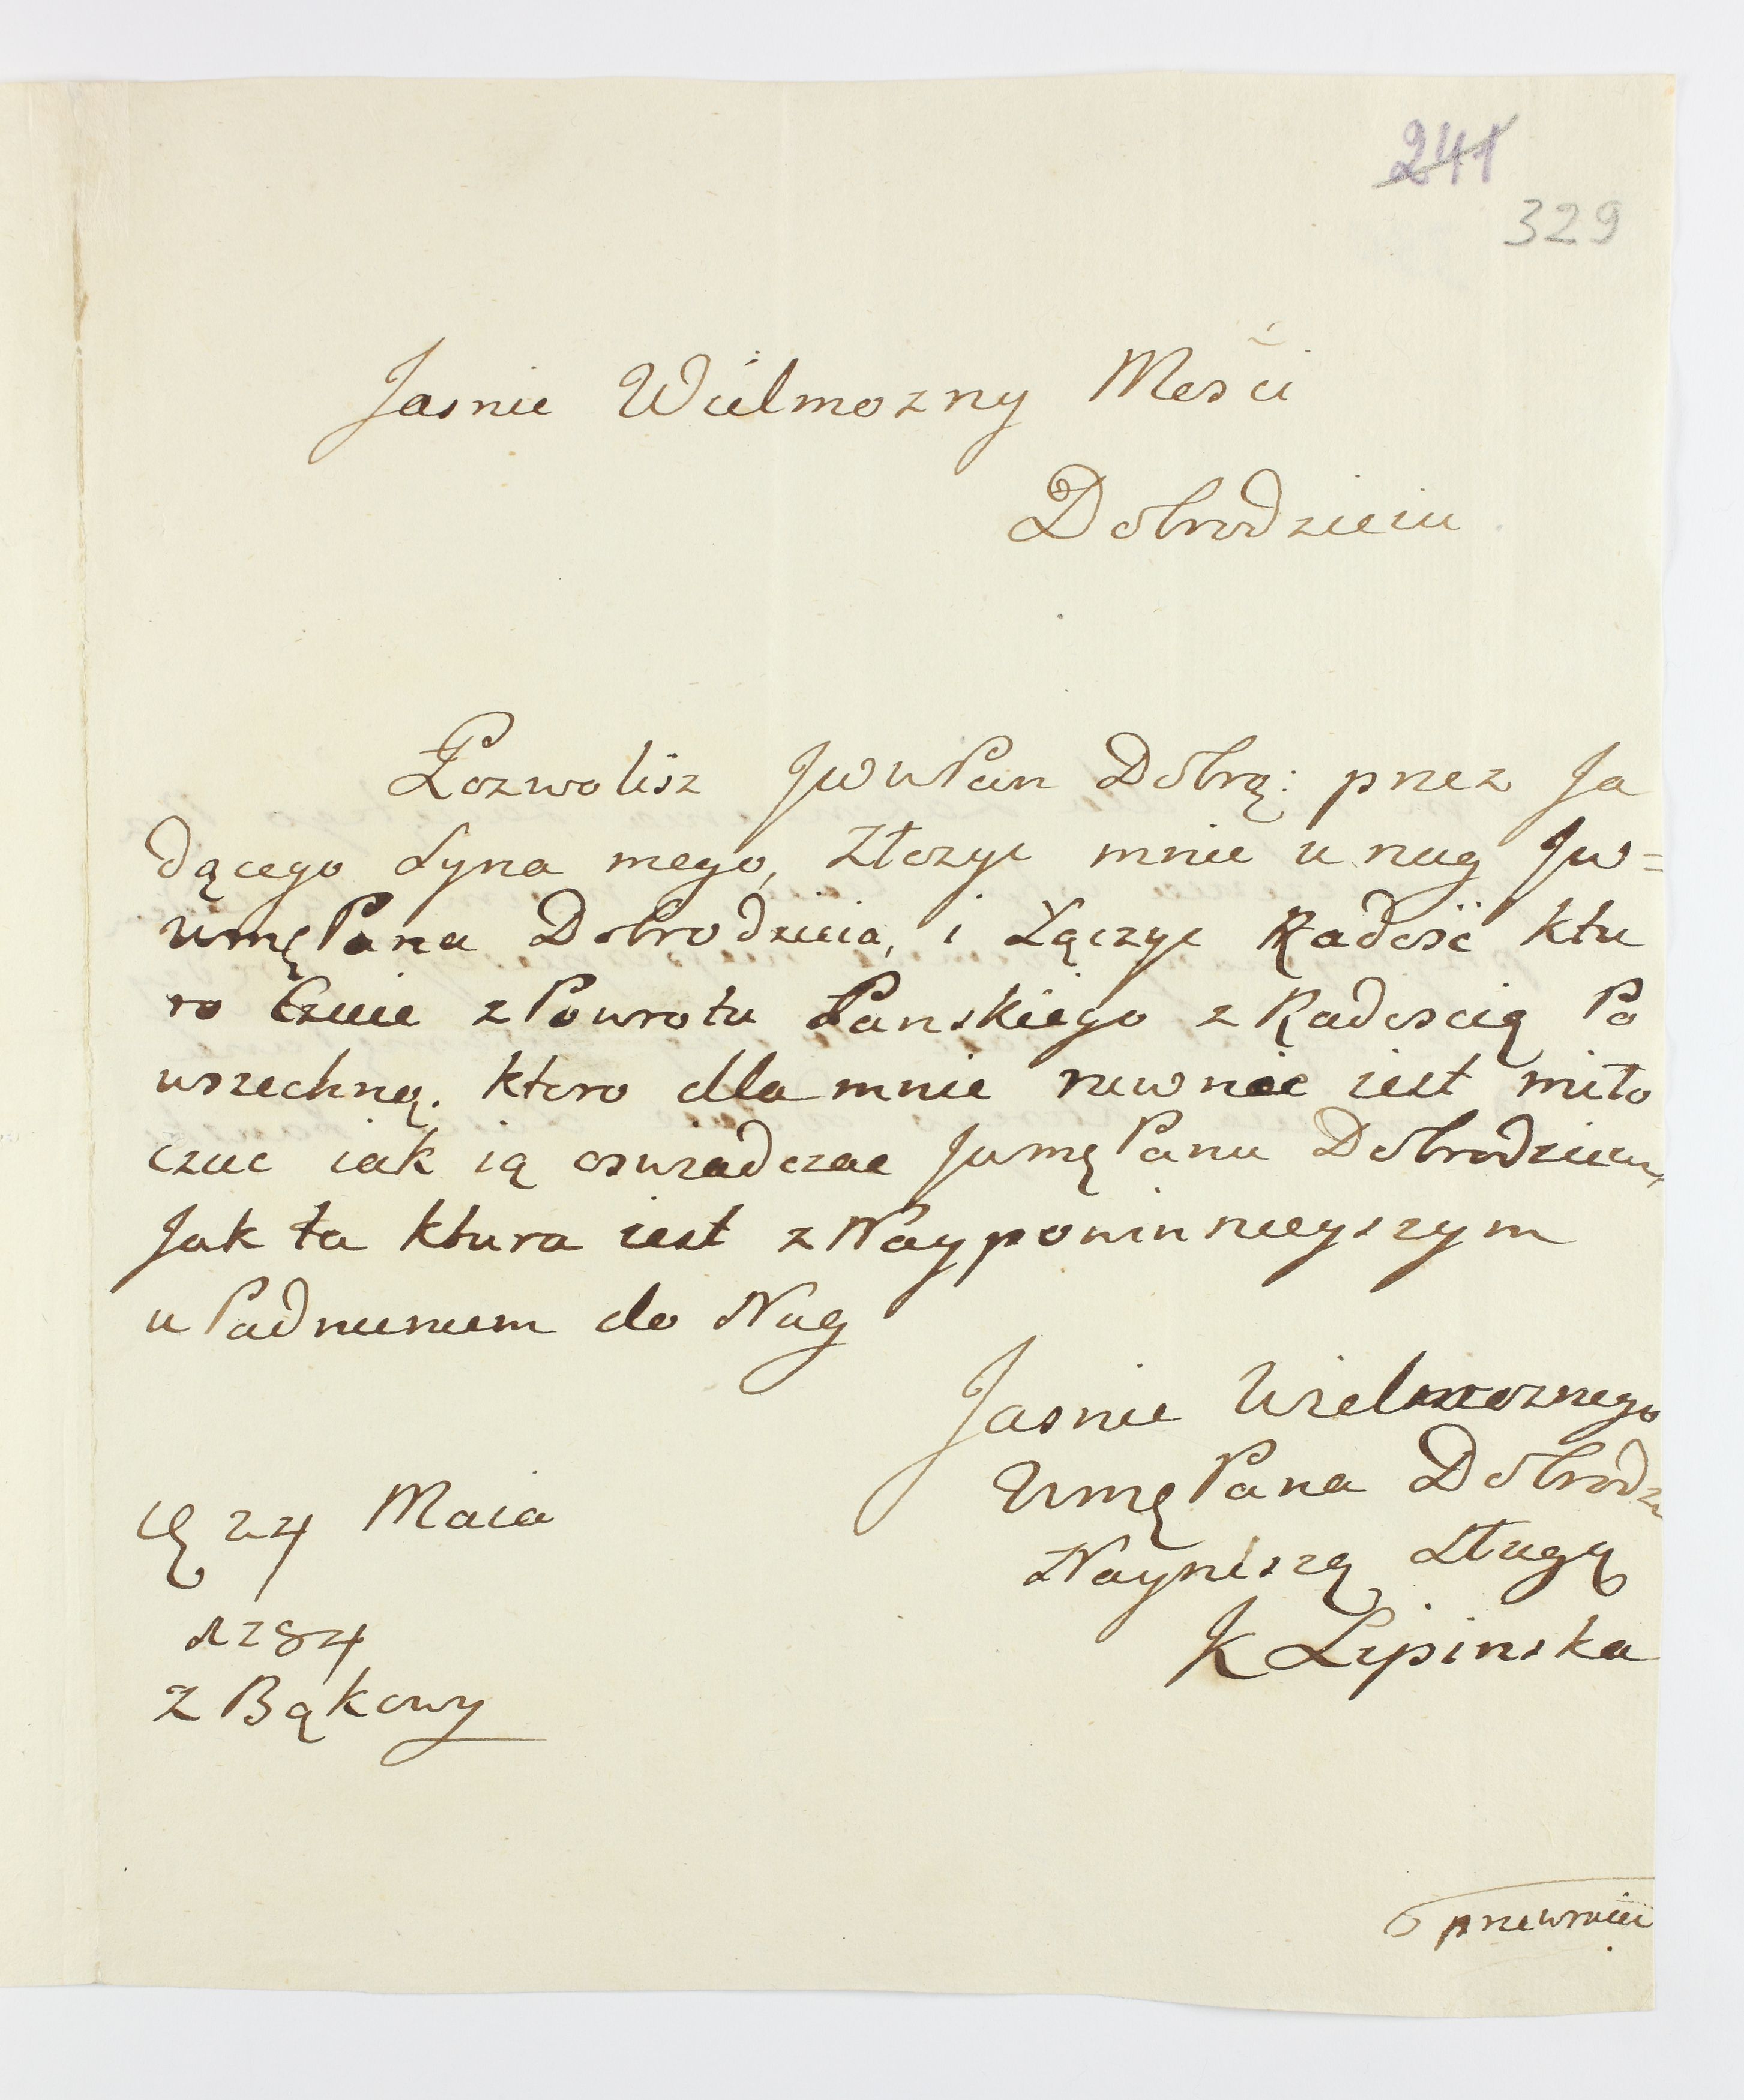 241
329
Jasnie Wielmozny Mesci
Dobrodzieiu
Pozwolisz JWWPan Dobrą: przez Ja
dącego Syna mego, Złozyc mnie u nug JW=
WmęPana Dobrodzieia, i Łączyc Radość ktu
ro Czuie z Powrotu Panskiego z Radoscią Po
wszechną. ktoro dla mnie rewnie iest miło
czuc iak ią oswiadczac JWmęPanu Dobrodzieiu,
Jak ta ktura iest z Naypowinnieyszym
uPadnieniem do Nug
Jasnie Wielmoznego
WmęPana Dobrodzi
Nayniszą Sługą
K Lipinska
24 Maia
1784
z Bąkowy